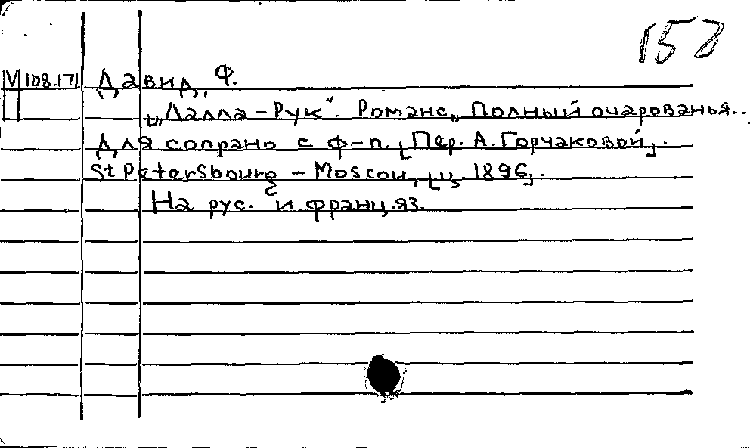 152
M 108.171 Давид, Ф.
„Лалла-Рук“. Романс „Полный очарованья...
Для сопрано с ф-п. [Пер. А. Горчаковой].
St Petersbourg - Moscou, [ц. 1896].
На рус. и франц. яз.